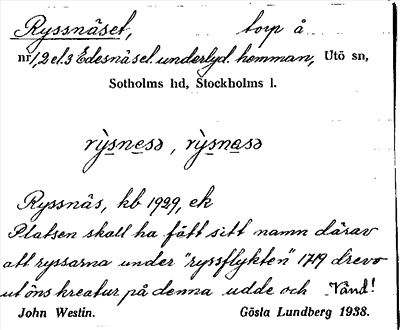 Ryssnäset, torp å
nr 1, 2 el. 3 Edesnäsel. underlyd. hemman, Utö sn,
Sotholms hd, Stockholms l.
rỳsnesə, rỳsnasə
Ryssnäs, hb 1929, ek
Platsen skall ha fått sitt namn därav
att ryssarna under "ryssflykten" 1719 drevo
ut öns kreatur på denna udde och Vänd!
John Westin. Gösla Lundberg 1938.